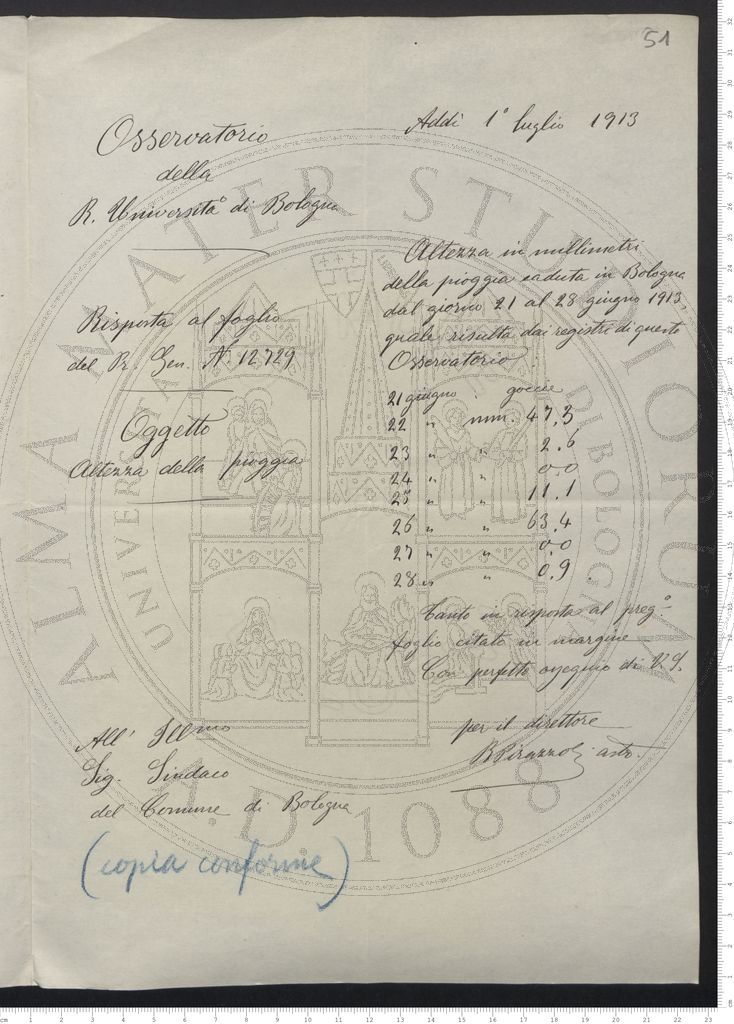 51
Osservatorio
della
R. Università di Bologna
Addì 1° luglio 1913
Risposta al foglio
del Pr. Gen. N. 12729
Oggetto
Altezza della pioggia
Altezza in millimetri
della pioggia caduta in Bologna
dal giorno 21 al 28 giugno 1913
quale risulta dai registri di questo
Osservatorio.
21 giugno : goccie
22 " mm. 47.3
23 " " 2.6
24 " " 0.0
25 " " 11.1
26 " " 63.4
27 " " 0.0
28 " " 0.9
Tanto in risposta al preg.°
foglio citato in margine
Con perfetto ossequio di V. S.
per il direttore
R Pirazzoli astr.
All' Illmo
Sig. Sindaco
del Comune di Bologna
(copia conforme)
ALMA MATER STUDIORUM
UNIVERSITÀ DI BOLOGNA
A.D. 1088